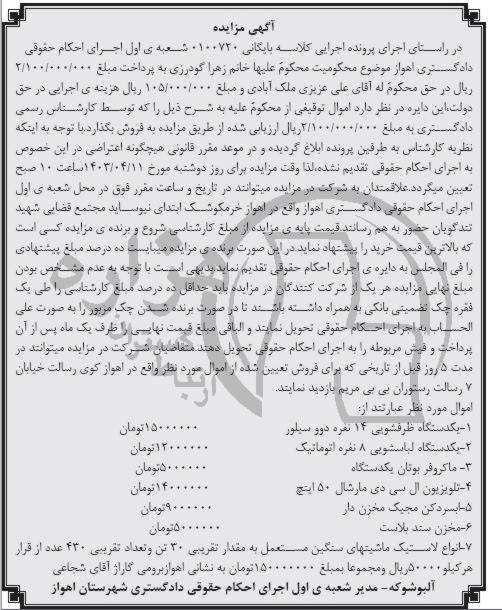 آگهی مزایده
در راستای اجرای پرونده اجرایی کلاسه بایگانی ۰۱۰۰۷۲۰ شعبه ی اول اجرای احکام حقوقی
دادگستری اهواز موضوع محکومیت محکوم علیها خانم زهرا گودرزی به پرداخت مبلغ ۲/۱۰۰/۰۰۰/۰۰۰
ریال در حق محکوم له آقای علی عزیزی ملک آبادی و مبلغ ۱۰۵/۰۰۰/۰۰۰ ریال هزینه ی اجرایی در حق
دولت،این دایره در نظر دارد اموال توقیفی از محکوم علیه به شرح ذیل را که توسط کارشناس رسمی
دادگستری به مبلغ ۲/۱۰۰/۰۰۰/۰۰۰ریال ارزیابی شده از طریق مزایده به فروش بگذارد.با توجه به اینکه
نظریه کارشناس به طرفین پرونده ابلاغ گردیده و در موعد مقرر قانونی هیچگونه اعتراضی در این خصوص
به اجرای احکام حقوقی تقدیم نشده،لذا وقت مزایده برای روز دوشنبه مورخ ۱۴۰۳/۰۴/۱۱ساعت ۱۰ صبح
تعیین میگردد.علاقمندان به شرکت در مزایده میتوانند در تاریخ و ساعت مقرر فوق در محل شعبه ی اول
اجرای احکام حقوقی دادگستری اهواز واقع در اهواز خرمکوشک ابتدای نیوساید مجتمع قضایی شهید
تندگویان حضور به هم رسانند.قیمت پایه ی مزایده از مبلغ کارشناسی شروع و برنده ی مزایده کسی است
که بالاترین قیمت خرید را پیشنهاد نماید.در این صورت برنده ی مزایده میبایست ده درصد مبلغ پیشنهادی
را فی المجلس به دایره ی اجرای احکام حقوقی تقدیم نماید.بدیهی است با توجه به عدم مشخص بودن
مبلغ نهایی مزایده هر یک از شرکت کنندگان در مزایده باید حداقل ده درصد مبلغ کارشناسی را طی یک
فقره چک تضمینی بانکی به همراه داشته باشند تا در صورت برنده شدن چک مزبور را به صورت علی
الحساب به اجرای احکام حقوقی تحویل نمایند و الباقی مبلغ قیمت نهایی را ظرف یک ماه پس از آن
پرداخت و فیش مربوطه را به اجرای احکام حقوقی تحویل دهند.متقاضیان شرکت در مزایده میتوانند در
مدت ۵ روز قبل از تاریخی که برای فروش تعیین شده از اموال مورد نظر واقع در اهواز کوی رسالت خیابان
۷ رسالت رستوران بی بی مریم بازدید نمایند.
اموال مورد نظر عبارتند از:
۱-یکدستگاه ظرفشویی ۱۴ نفره دوو سیلور ۱۵۰۰۰۰۰۰تومان
۲-یکدستگاه لباسشویی ۸ نفره اتوماتیک ۱۲۰۰۰۰۰۰تومان
۳- ماکروفر بوتان یکدستگاه ۵۰۰۰۰۰۰تومان
۴-تلویزیون ال سی دی مارشال ۵۰ اینچ ۱۴۰۰۰۰۰۰تومان
۵-آبسردکن مجیک مخزن دار ۹۰۰۰۰۰۰تومان
۶-مخزن سند بلاست ۵۰۰۰۰۰۰تومان
۷-انواع لاستیک ماشینهای سنگین مستعمل به مقدار تقریبی ۳۰ تن وتعداد تقریبی ۴۳۰ عدد از قرار
هرکیلو۵۰۰۰۰ریال ومجموعا بمبلغ ۱۵۰۰۰۰۰۰۰تومان به نشانی اهوازبرومی گاراژ آقای شجاعی
آلبوشوکه- مدیر شعبه ی اول اجرای احکام حقوقی دادگستری شهرستان اهواز